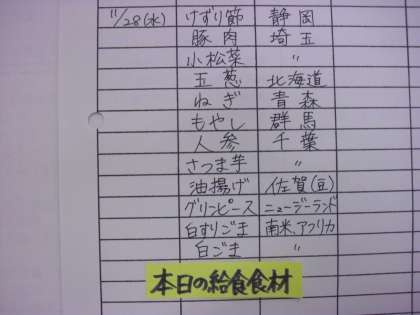 11/28(水) けずり節 静岡
豚肉 埼玉
小松菜 〃
玉葱 北海道
ねぎ 青森
もやし 群馬
人参 千葉
さつま芋 〃
油揚げ 佐賀(豆)
グリンピース ニュージーランド
白すりごま 南米、アフリカ
白ごま 〃
本日の給食食材